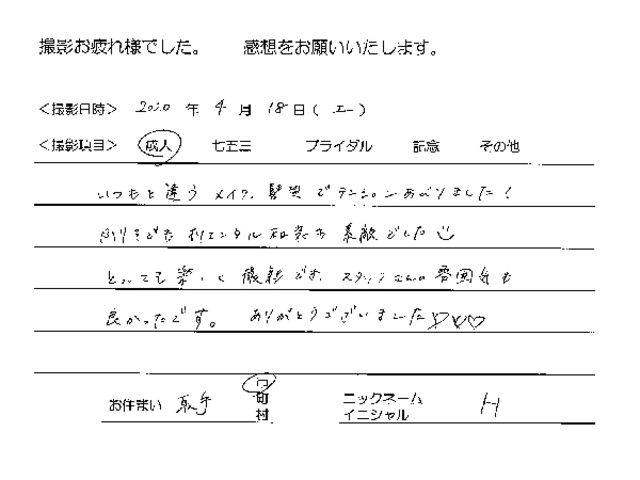 撮影お疲れ様でした。 感想をお願いいたします。
<撮影日時> 2020 年 4 月 18 日 ( 土 )
<撮影項目> 成人 七五三 ブライダル 記念 その他
いつもと違うメイク、髪型でテンションあがりました!
も 素敵でした
とっても楽しく撮影でき、スタッフさんの雰囲気も
良かったです。 ありがとうございました♡♡♡
お住まい 取手 市 町 村
ニックネーム イニシャル H